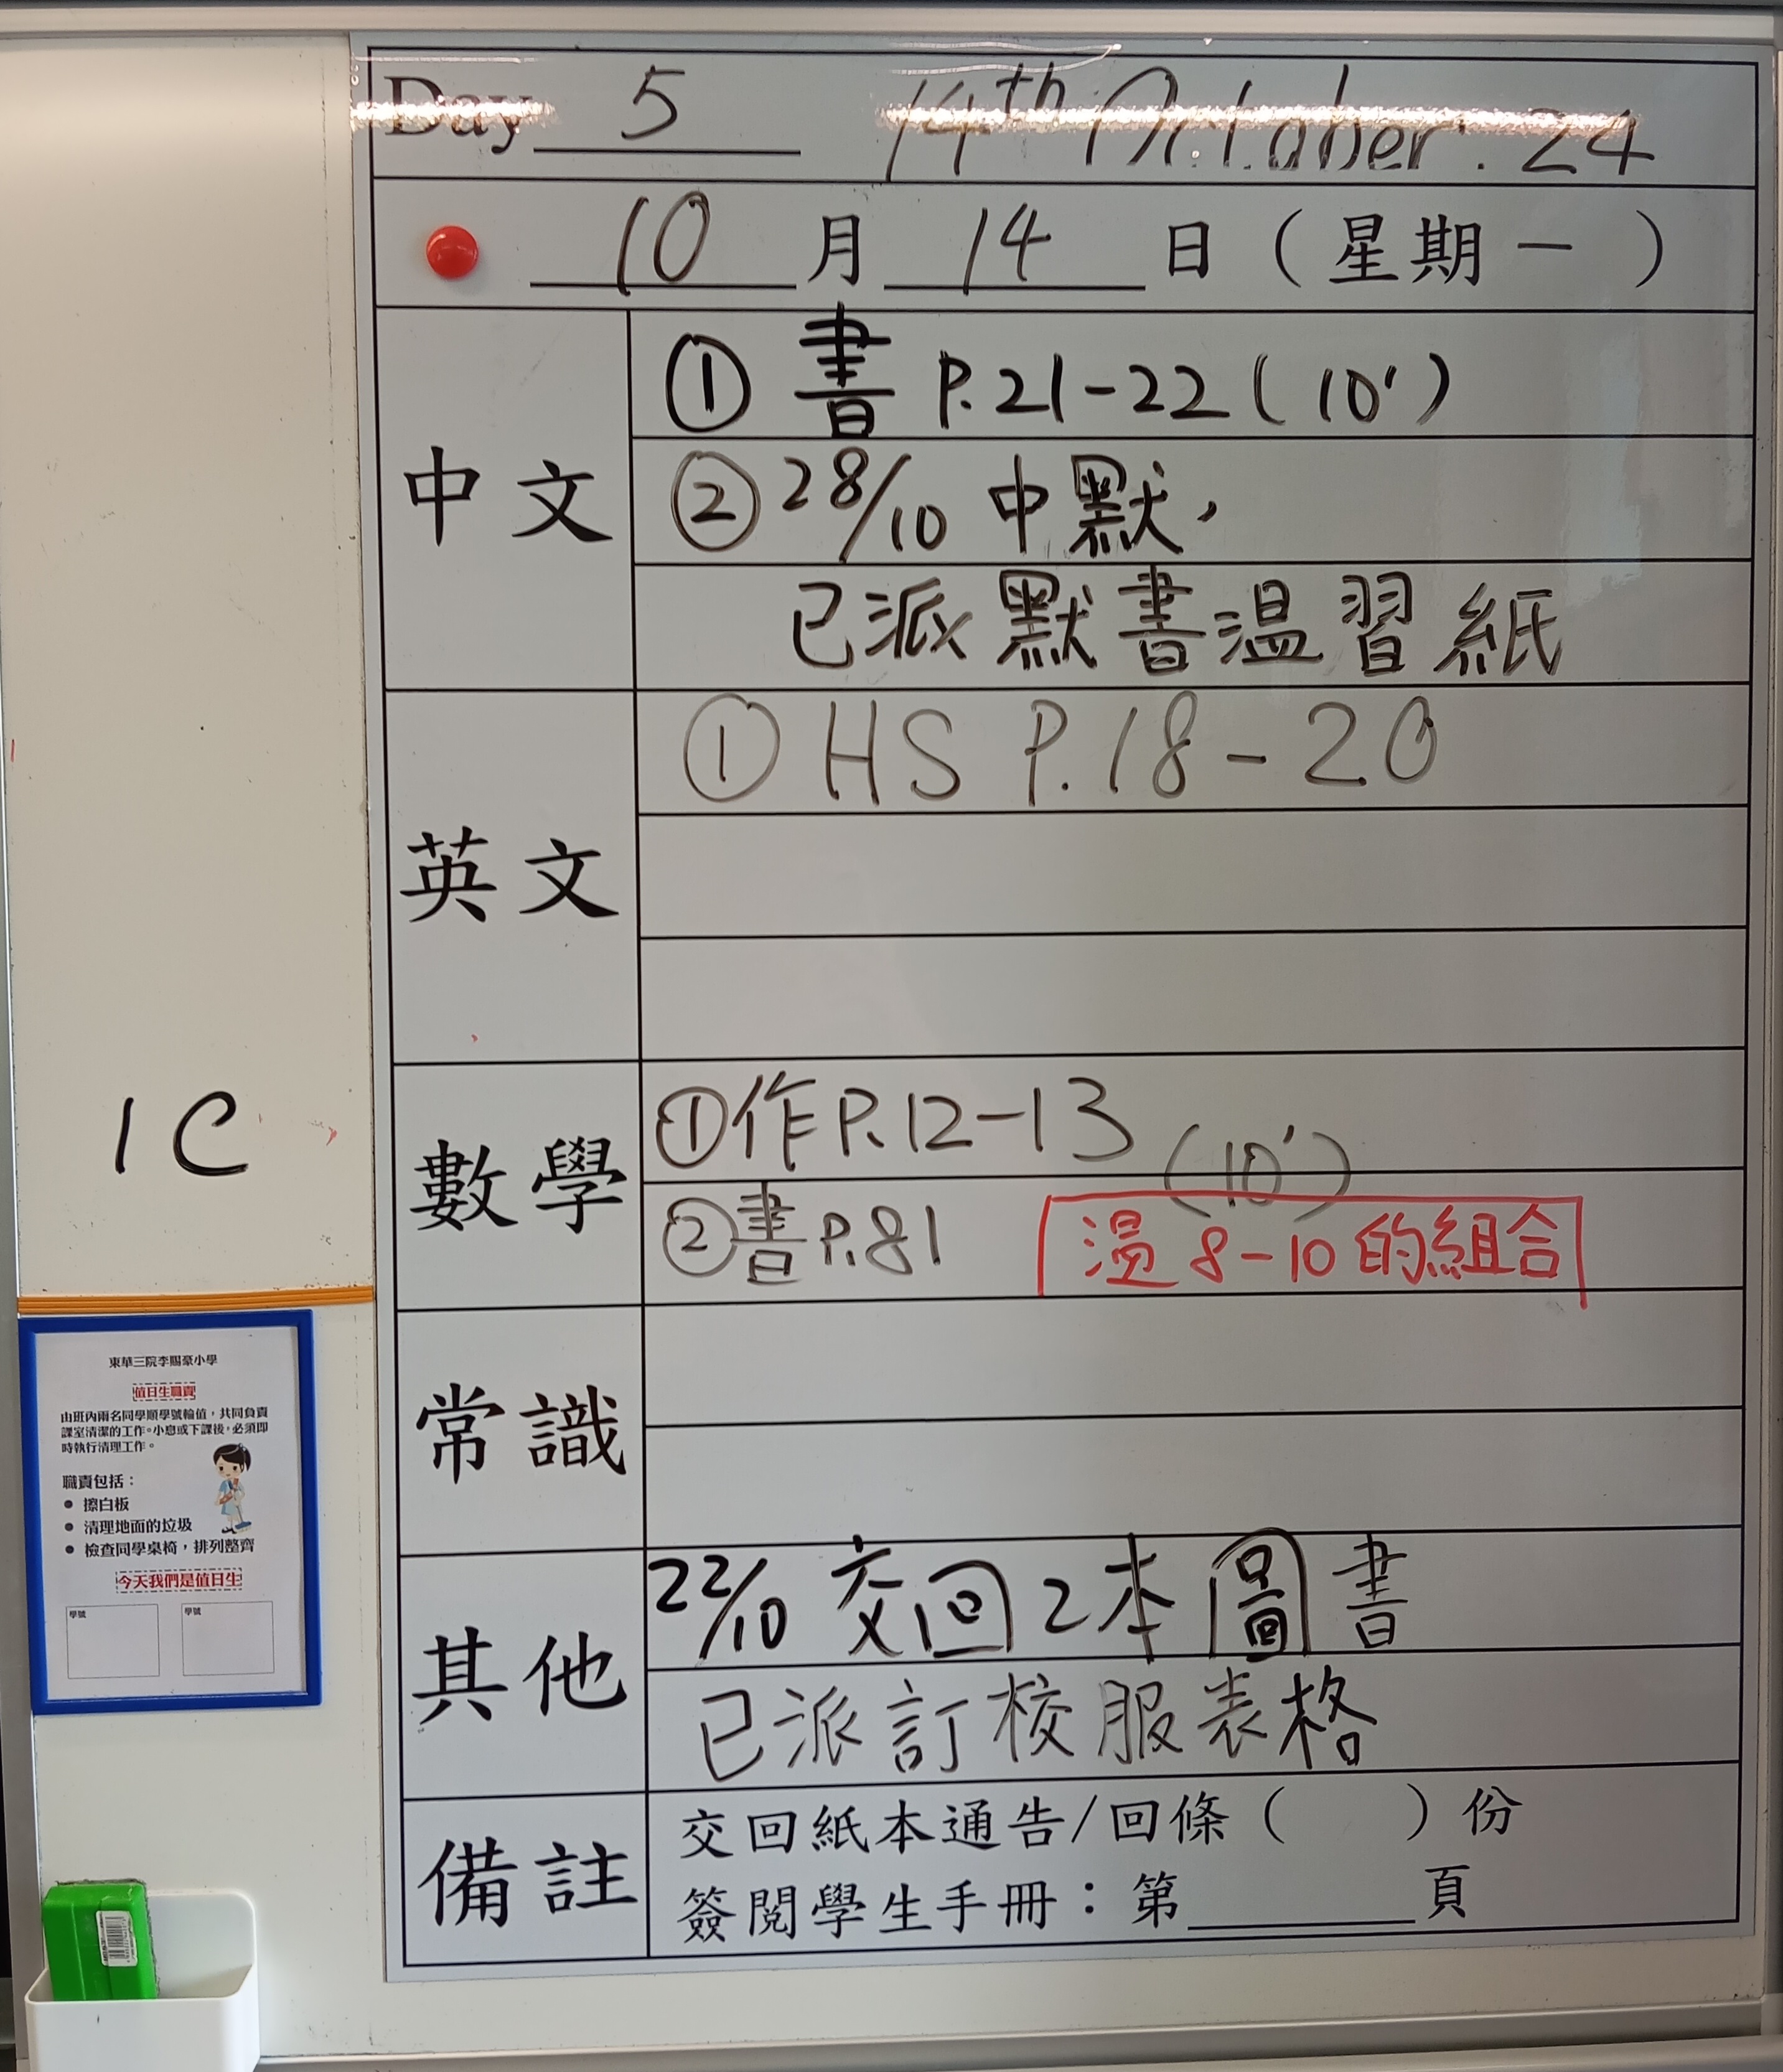 Day 5 14th October. 24
10 月 14 日 ( 星期一 )
中文
① 書 P.21-22 ( 10' )
② 28/10 中默，
已派默書温習紙
英文
① HS P.18-20
1C
數學
① 作 P.12-13 (10')
② 書 P.81 温 8-10 的組合
常識
其他
22/10 交回2本圖書
已派訂校服表格
備註
交回紙本通告/回條 ( ) 份
簽閱學生手冊：第______頁
東華三院李賜豪小學
值日生職責
由班內兩名同學順學號輪值，共同負責
課室清潔的工作。小息或下課後，必須即
時執行清理工作。
職責包括：
● 擦白板
● 清理地面的垃圾
● 檢查同學桌椅，排列整齊
今天我們是值日生
學號 學號